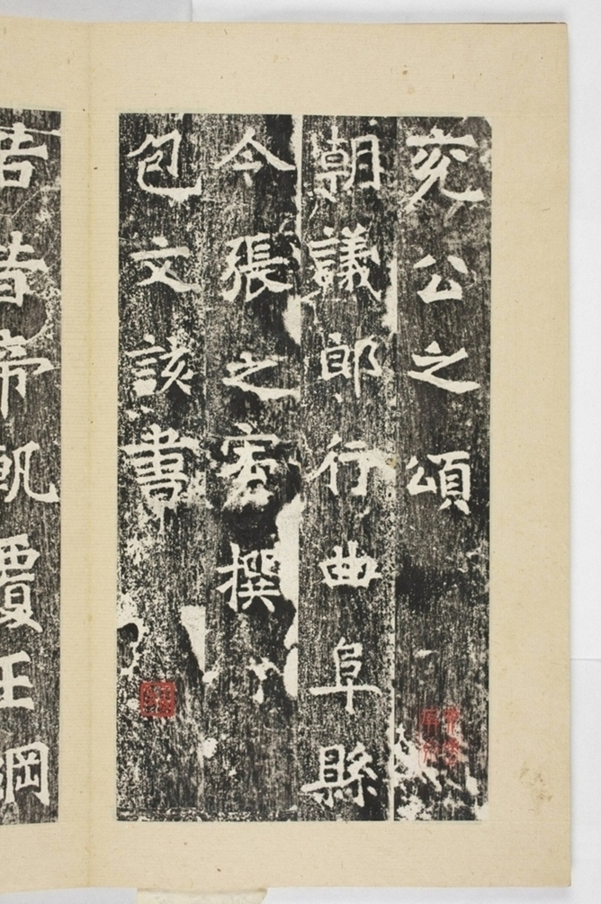 兗公之頌
朝議郎行曲阜縣
令張之宏撰
包文該書
昔帝軌覆王綱